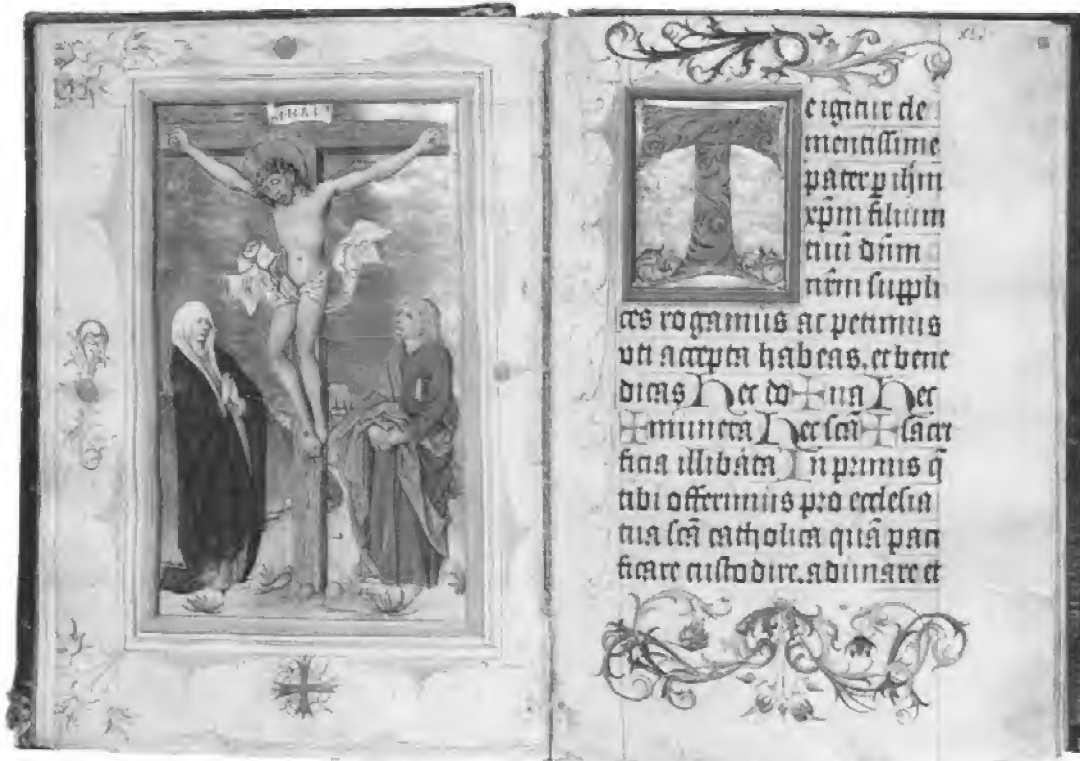 INRI
Te igitur cle
mentissime
pater p̱ ih̄m
xp̄m filium
tuū dn̄m
nr̄m suppli
ces rogamus ac petimus
vti accepta habeas. et bene
dicas Hec do+na Hec
+munera Hec scā+sacri
ficia illibata In primis q̄
tibi offerimus pro ecclesia
tua scā catholica quā paci
ficare custodire. adunare et